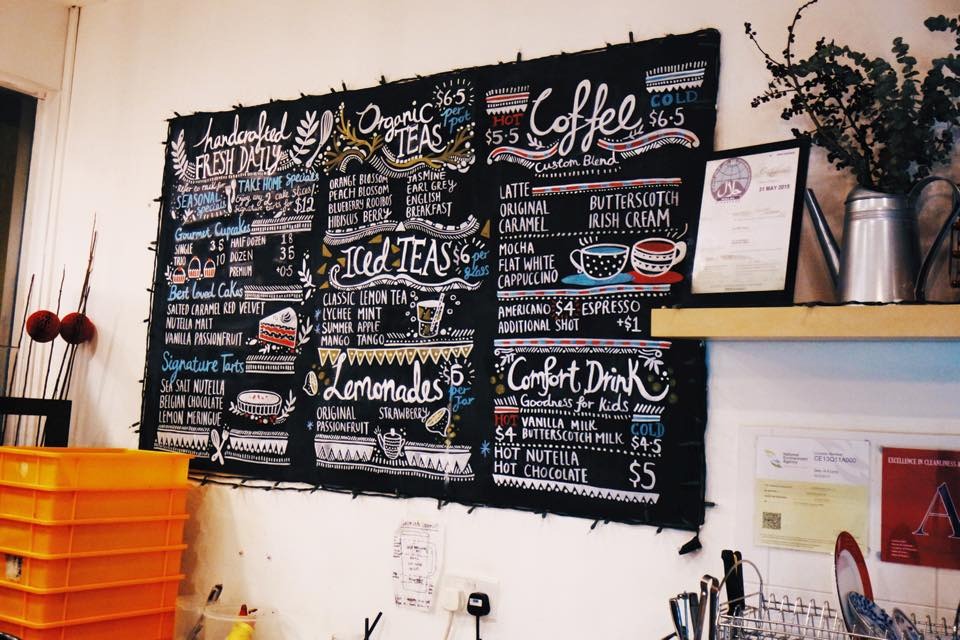 handcrafted
FRESH DAILY
TAKE HOME Specials
SEASONAL
$12
Gourmet Cupcakes
SINGLE 3.5
TRIO 10
HALF DOZEN 18
DOZEN 35
PREMIUM +0.5
Best Loved Cakes
SALTED CARAMEL RED VELVET
NUTELLA MALT
VANILLA PASSIONFRUIT
Signature Tarts
SEA SALT NUTELLA
BELGIAN CHOCOLATE
LEMON MERINGUE
Organic
TEAS
$6.5
per
pot
ORANGE BLOSSOM
PEACH BLOSSOM
BLUEBERRY ROOIBOS
HIBISCUS BERRY
JASMINE
EARL GREY
ENGLISH
BREAKFAST
Iced TEAS
$6 per
glass
CLASSIC LEMON TEA
LYCHEE MINT
SUMMER APPLE
MANGO TANGO
Lemonades
$6
per
Jar
ORIGINAL STRAWBERRY
PASSIONFRUIT
HOT
$5.5
Coffee
COLD
$6.5
Custom Blend
LATTE
ORIGINAL
CARAMEL
BUTTERSCOTCH
IRISH CREAM
MOCHA
FLAT WHITE
CAPPUCCINO
AMERICANO $4 ESPRESSO
ADDITIONAL SHOT +$1
Comfort Drink
Goodness for Kids
HOT
$4
VANILLA MILK
BUTTERSCOTCH MILK
COLD
$4.5
HOT NUTELLA
HOT CHOCOLATE
$5
21 MAY 2015
National
Environment
Agency
CE13Q11A000
EXCELLENCE IN CLEANLINESS
A